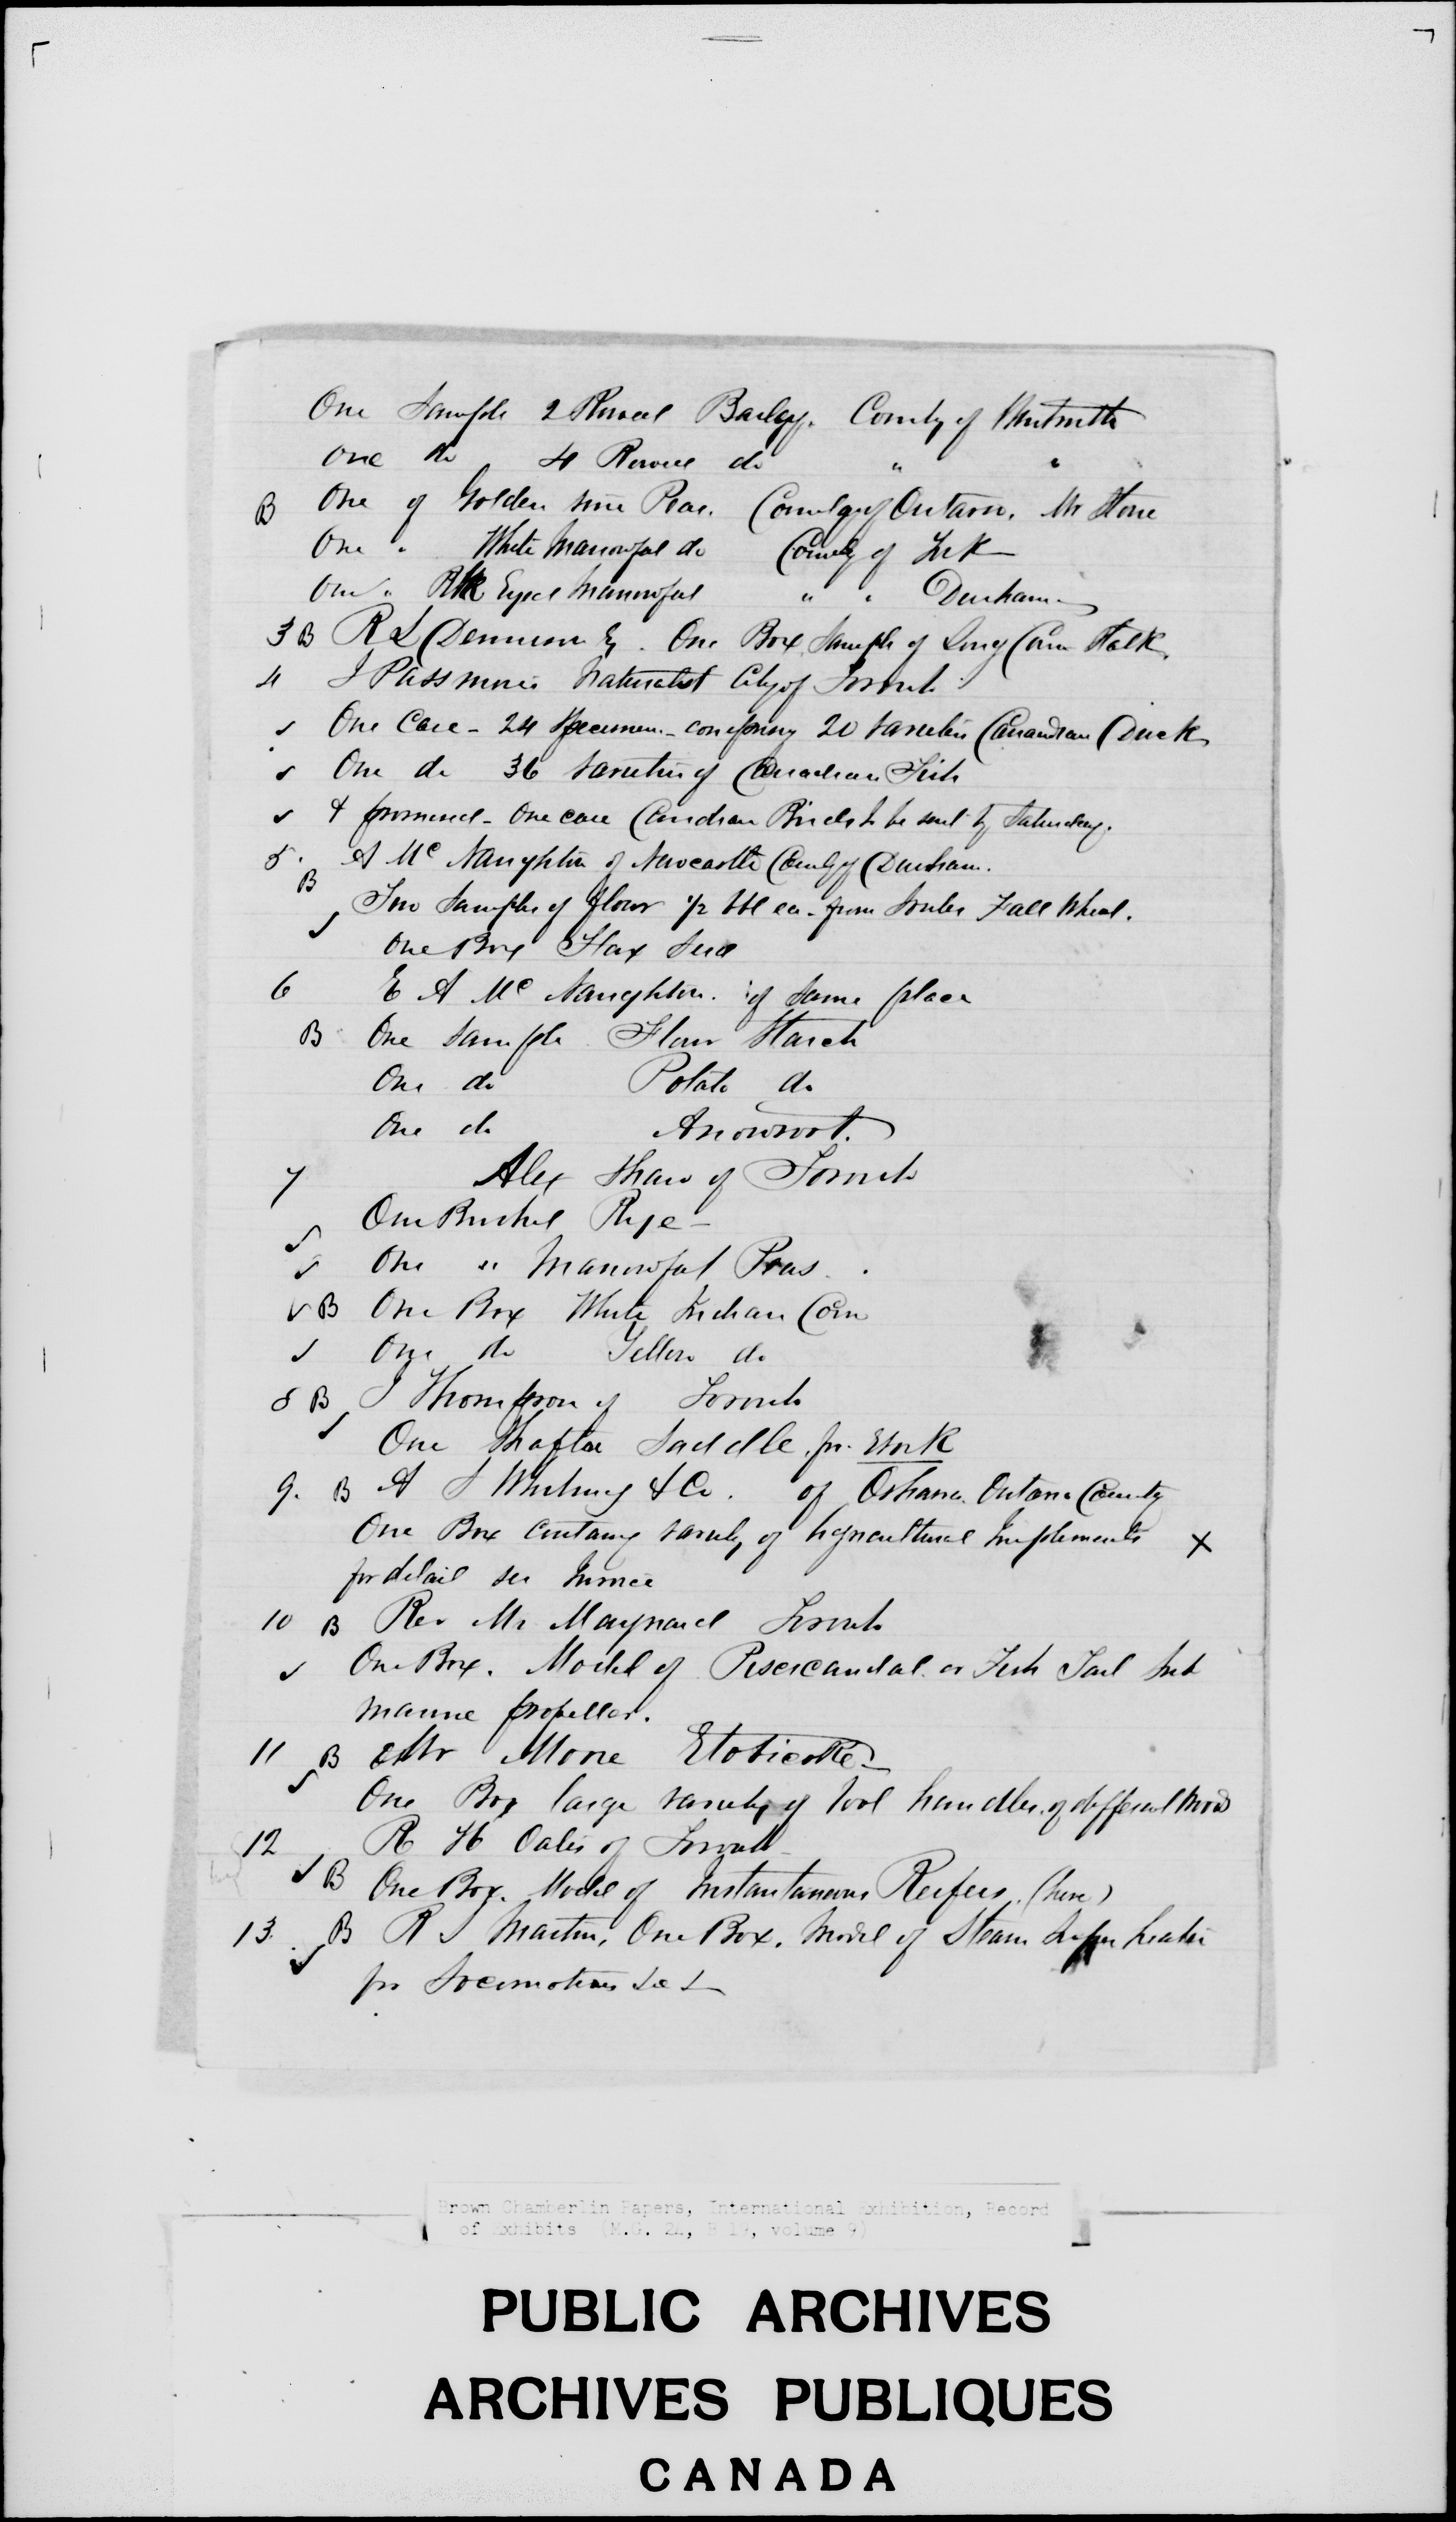 One Sample 2 Rowed Barley. County of
One do 4 Rowed do " "
B One of Golden vine Peas. County of Ontario. Mr Stone
One " White Marrowfat do County of
One " Blk Eyed Marrowfat " " Durham
3 B R L Dennison Esq. One Box Sample of Long Corn Stalk.
4 J Passmore Naturalist City of Toronto
✓ One Case - 24 Specimens - comprising 20 varieties Canadian Duck
✓ One do 36 varieties of Canadian Fish
✓ & promised - One case Canadian Birds to be sent by Saturday.
5. A Mc Naughton of Newcastle County of Durham.
B
✓ Two Samples of flour 1/2 bbl ea - from Soules Fall Wheat.
One Box Flax Seed
6 E A Mc Naughton. of same place
B One sample Flour Starch
One do Potato do
One do Arrowroot.
7 Alex Shaw of Toronto
✓ One Bushel Rye -
✓ One " Marrowfat Peas.
✓ B One Box White Indian Corn
✓ One do Yellow do
8 B J Thompson of Toronto
✓ One Shaftoe Saddle. pr. Etork
9. B A S Whiting & Co. of Oshawa. Ontario County
One Box containg variety of Agricultural Implements X
for detail see Invoice
10 B Rev Mr Maynard Toronto
✓ One Box. Model of Piscicaudal or Fish Tail Sub
marine propeller.
11 B Mr Moore Etobicoke
✓ One Box large variety of tool handles of different Wood
12 R H Oates of Toronto
✓ B One Box. Model of Instantaneous Reefers. (here)
13. B R S Martin, One Box. Model of Steam Super heater
✓ for Locomotives &c &
Brown Chamberlin Papers, International Exhibition, Record
of Exhibits (M.G. 24, B 19, volume 9)
PUBLIC ARCHIVES
ARCHIVES PUBLIQUES
CANADA